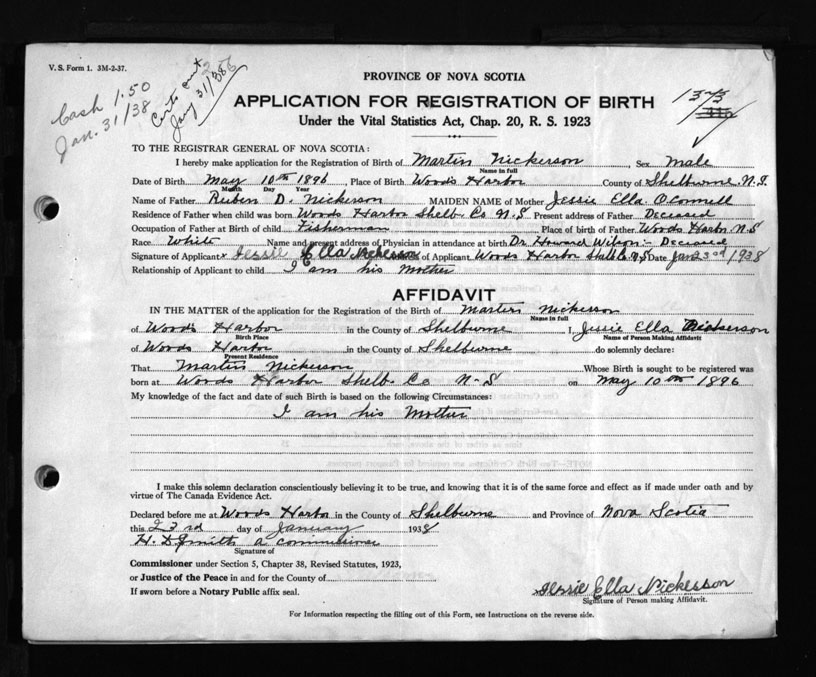 V. S. Form 1. 3M-2-37.
Cash 1.50
Jan. 31/38
Jany 31/38
PROVINCE OF NOVA SCOTIA
APPLICATION FOR REGISTRATION OF BIRTH
Under the Vital Statistics Act, Chap. 20, R. S. 1923
TO THE REGISTRAR GENERAL OF NOVA SCOTIA:
I hereby make application for the Registration of Birth of Martin Nickerson, Sex male
Name in full
Date of Birth May 10th 1896 Place of Birth Woods Harbor County of Shelburne. N.S.
Month Day Year
Name of Father Reuben D. Nickerson MAIDEN NAME of Mother Jessie Ella O'Connell
Residence of Father when child was born Woods Harbor Shelb. Co N.S Present address of Father Deceased
Occupation of Father at Birth of child Fisherman Place of birth of Father Woods Harbor. N.S
Race White Name and present address of Physician in attendance at birth Dr Howard Wilson - Deceased
Signature of Applicant x Jessie Ella Nickerson of Applicant Woods Harbor Shelb Co N.S Date Jan 23rd 1938
Relationship of Applicant to child I am his Mother
AFFIDAVIT
IN THE MATTER of the application for the Registration of the Birth of Martin Nickerson
Name in full
of Woods Harbor in the County of Shelburne I, Jessie Ella Nickerson
Birth Place Name of Person Making Affidavit
of Woods Harbor in the County of Shelburne do solemnly declare:
Present Residence
That Martin Nickerson Whose Birth is sought to be registered was
born at Woods Harbor Shelb. Co N-S on May 10th 1896
My knowledge of the fact and date of such Birth is based on the following Circumstances:
I am his Mother
I make this solemn declaration conscientiously believing it to be true, and knowing that it is of the same force and effect as if made under oath and by
virtue of The Canada Evidence Act.
Declared before me at Woods Harbor in the County of Shelburne and Province of Nova Scotia
this 23rd day of January 1938
H. D Smith a commissioner
Signature of
Commissioner under Section 5, Chapter 38, Revised Statutes, 1923,
or Justice of the Peace in and for the County of
If sworn before a Notary Public affix seal.
Jessie Ella Nickerson
Signature of Person making Affidavit.
For Information respecting the filling out of this Form, see Instructions on the reverse side.